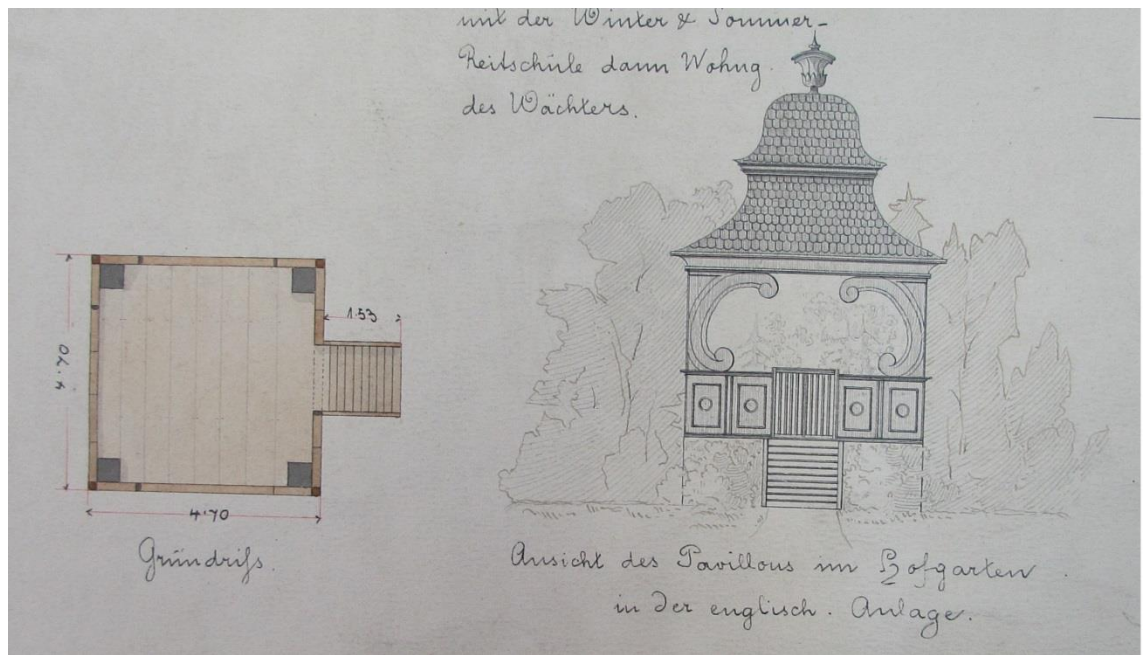 mit der Winter & Sommer-
Reitschule dann Wohng.
des Wächters.
1·53
4·70
4·70
Grundriſs.
Ansicht des Pavillons im Hofgarten.
in der englisch. Anlage.